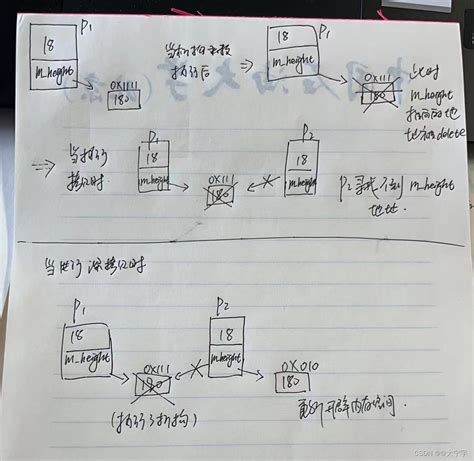 P1
18
m_height
0X111
180
当析构函数
执行后
⇒
P1
18
m_height
0X111
180
此时
m_height
指向的地
址被delete
⇒ 当执行
拷贝时
P1
18
m_height
0X111
180
P2
18
m_height
P2寻找不到 m_height
地址.
当进行深拷贝时
P1
18
m_height
0X111
180
(执行了析构)
P2
18
m_height
0X010
180
重新开辟内存空间.
CSDN @大宇宇